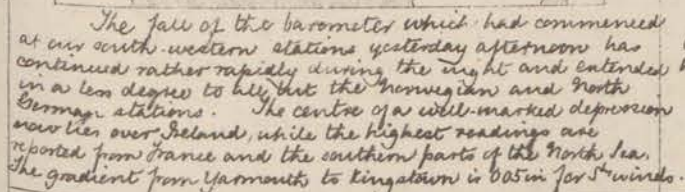 The fall of the barometer which had commenced
at our south-western stations yesterday afternoon has
continued rather rapidly during the night and extended
in a less degree to all but the Norwegian and North
German stations. The centre of a well-marked depression
now lies over Ireland, while the highest readings are
reported from France and the southern parts of the North Sea.
The gradient from Yarmouth to Kingstown is 0.05 in for Sly winds.